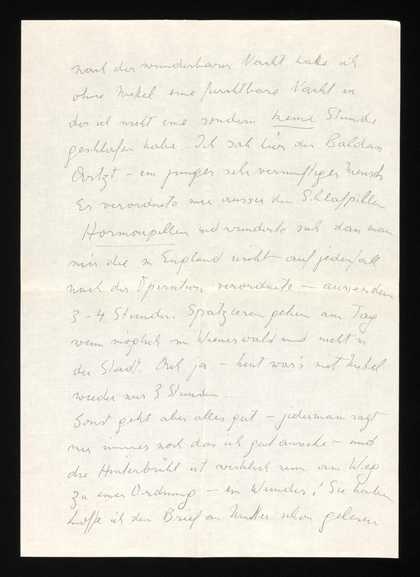 nach der wunderbaren Nacht habe ich
ohne Nickel eine furchtbare Nacht in
der ich nicht eine sondern keine Stunde
geschlafen habe. Ich sah hier den
Artzt – ein junger sehr vernünftiger Mensch
Er verordnete mir ausser den Schlafpillen
Hormonpillen und wunderte sich dass man
mir die in England nicht – auf jedenfall
nach der Operation verordnete – ausserdem
3-4 Stunden Spatzieren gehen am Tag
wenn möglich im Wienerwald und nicht in
der Stadt. Ach ja – heut war's mit Nickel
wieder nur 3 Stunden.
Sonst geht aber alles gut – jedermann sagt
mir immer noch dass ich gut aussehe – und
die Hinterbrühl ist wirklich nun am Weg
zu einer Ordnung – ein Wunder! Sie haben
hoffe ich den Brief an schon gelesen